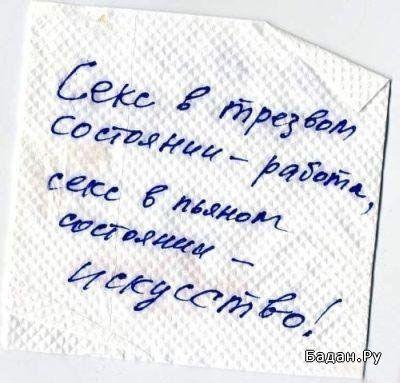 Секс в трезвом
состоянии - работа,
секс в пьяном
состоянии -
искусство!
Бадан.Ру